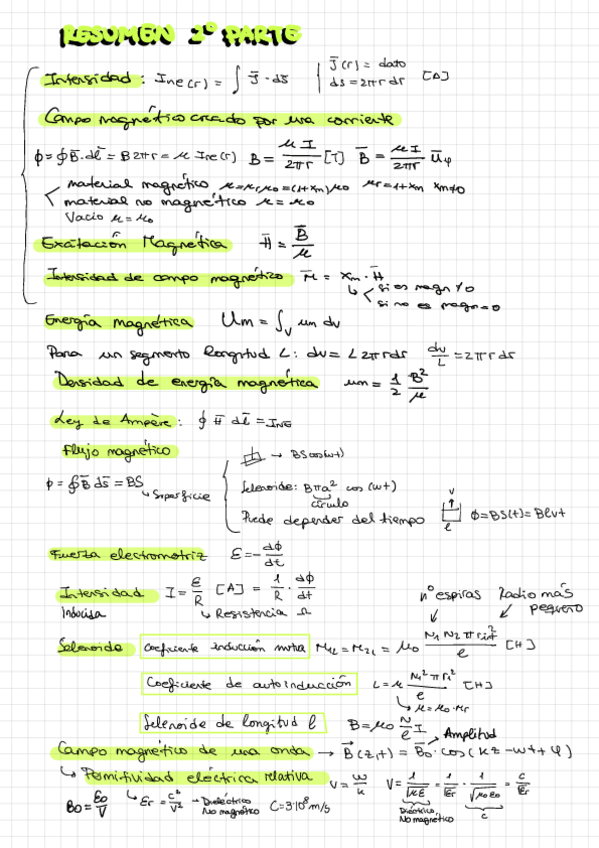 RESUMEN 2º PARTE
Intensidad : Ine(r) = ∫ J̄ · ds̄
J̄(r) = dato
ds = 2πr dr [A]
Campo magnético creado por una corriente
ϕ = ∮ B̄ · dl̄ = B 2πr = μ Ine(r) B = μ I / 2πr [T] B̄ = μ I / 2πr ūφ
material magnético μ = μr μ0 = (1+Xm) μ0 μr = 1+Xm Xm≠0
material no magnético μ = μ0
Vacío μ = μ0
Excitación Magnética H̄ = B̄ / μ
Intensidad de campo magnético M̄ = Xm · H̄
si es magn ≠ 0
si no es magn = 0
Energía magnética Um = ∫v um dv
Para un segmento longitud L: dv = L 2πr dr dv/L = 2πr dr
Densidad de energía magnética um = 1/2 B²/μ
Ley de Ampère: ∮ H̄ dl̄ = INE
Flujo magnético
→ BS cos(wt)
ϕ = ∮ B̄ ds̄ = BS
↳ Superficie
Selenoide: Bπa² cos(wt)
círculo
Puede depender del tiempo
v
l
ϕ = BS(t) = Blvt
Fuerza electromotriz ε = - dϕ/dt
Intensidad I = ε/R [A] = 1/R · dϕ/dt
Inducida
↳ Resistencia Ω
nº espiras Radio más pequeño
Selenoide Coeficiente inducción mutua M12 = M21 = μ0 N1 N2 π rinf² / l [H]
Coeficiente de autoinducción L = μ N1² π r1² / l [H]
↳ μ = μ0 · μr
Selenoide de longitud l B = μ0 N/l I
Amplitud
Campo magnético de una onda → B̄(z,t) = B̄0 · cos(kz - wt + φ)
↳ Permitividad eléctrica relativa v = w/k V = 1/√με = 1/√εr · 1/√μ0ε0 = c/√εr
B0 = E0/V ↳ εr = c²/v² → Dieléctrico No magnético C = 3·10⁸ m/s
Dieléctrico No magnético
c